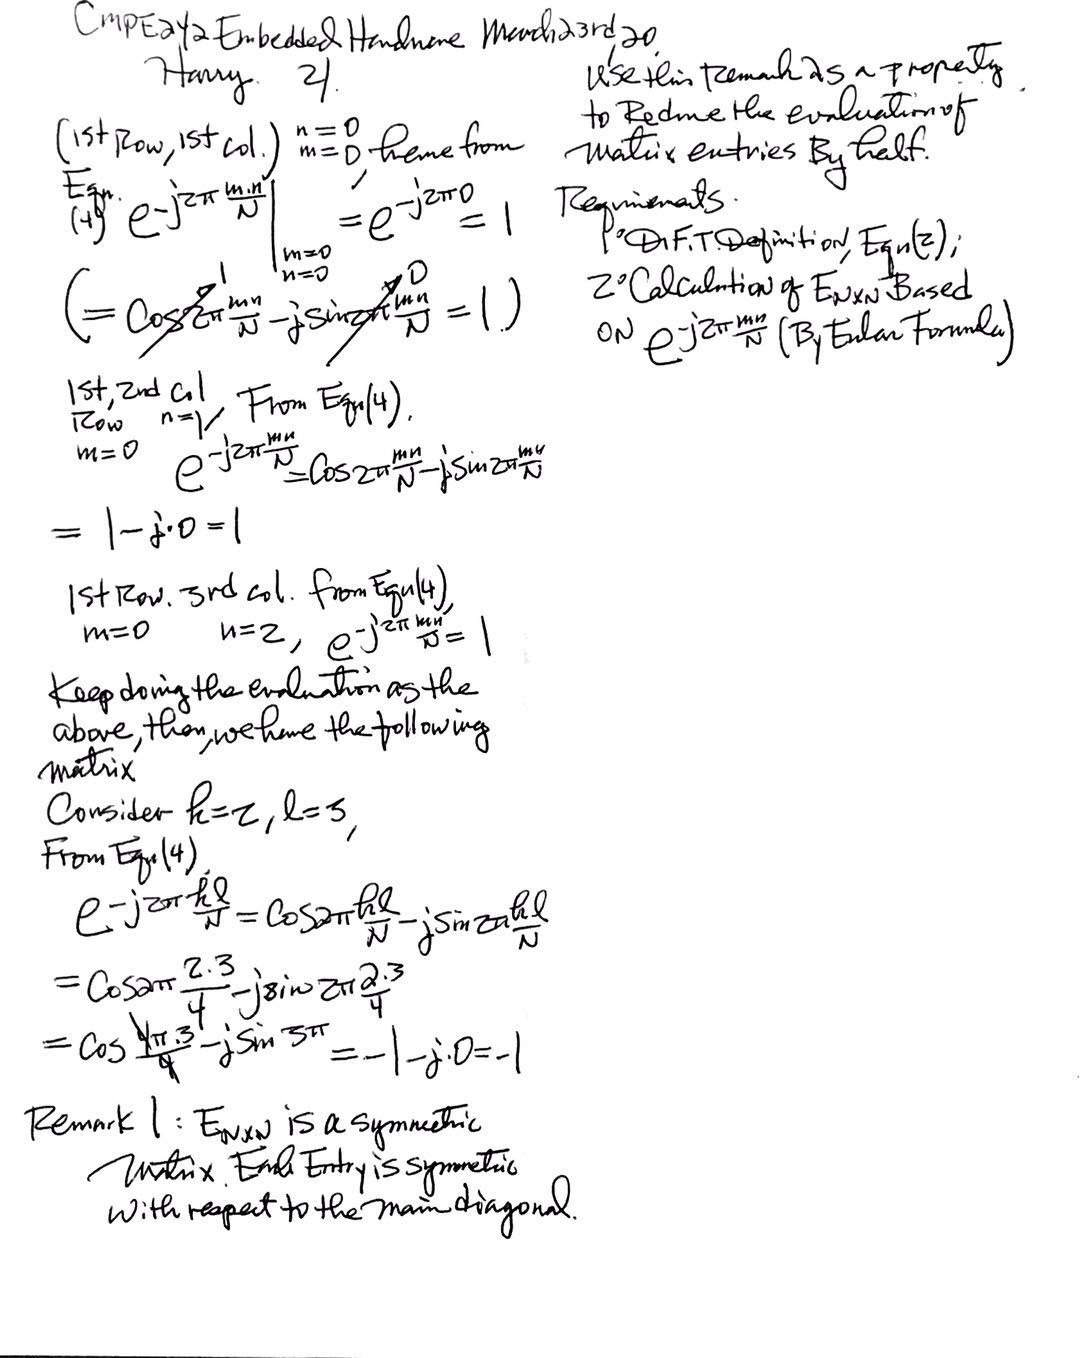 CMPE242 Embedded Hardware March 23rd, 20
Harry. 21.
(1st Row, 1st col.) n=0 m=0, hence from
Eqn. (4) e^{-j2π m·n/N} | m=0 n=0 = e^{-j2π0} = 1
(= Cos2π mn/N - j sin2π mn/N = 1.)
1st, 2nd Col
Row n=1, From Eqn(4).
m=0 e^{-j2π mn/N} = Cos2π mn/N - j sin2π mn/N
= 1 - j·0 = 1
1st Row. 3rd col. from Eqn(4),
m=0 n=2, e^{-j2π mn/N} = 1
Keep doing the evaluation as the
above, then, we have the following
matrix
Consider k=2, l=3,
From Eqn(4),
e^{-j2π kl/N} = Cos2π kl/N - j sin2π kl/N
= Cos2π 2·3/4 - j sin 2π 2·3/4
= Cos 4π·3/4 - j sin 3π = -1 - j·0 = -1
Remark 1: E_{NxN} is a symmetric
Matrix. Each Entry is symmetric
with respect to the main diagonal.
Use this Remark as a property
to Reduce the evaluation of
matrix entries By half.
Requirements.
1° D.F.T. Definition, Eqn(2);
2° Calculation of E_{NxN} Based
ON e^{-j2π mn/N} (By Eular Formula)